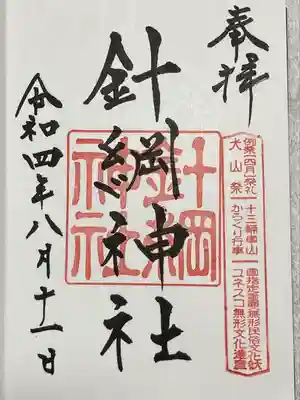 奉拝
例祭(四月)祭礼
犬山祭
十三輌車山
からくり行事
国指定重要無形民俗文化財
ユネスコ無形文化遺産
針綱神社
針綱
神社
令和四年八月十一日